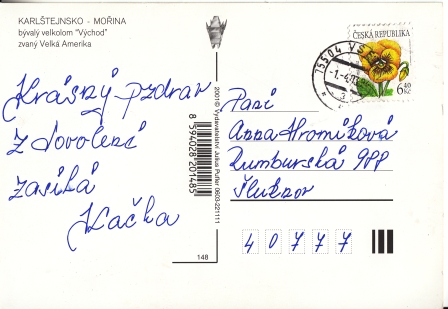 KARLŠTEJNSKO - MOŘINA
bývalý velkolom "Východ"
zvaný Velká Amerika
Krásný pozdrav
z dovolené
zasílá
Kačka
2001© Vydavatelství Julius Pufler 0603-221111
8 594028 201485
148
ČESKÁ REPUBLIKA
6 40
Kč
755 04 VS
Paní
Anna Hromíková
Rumburská 988
Šluknov
40777